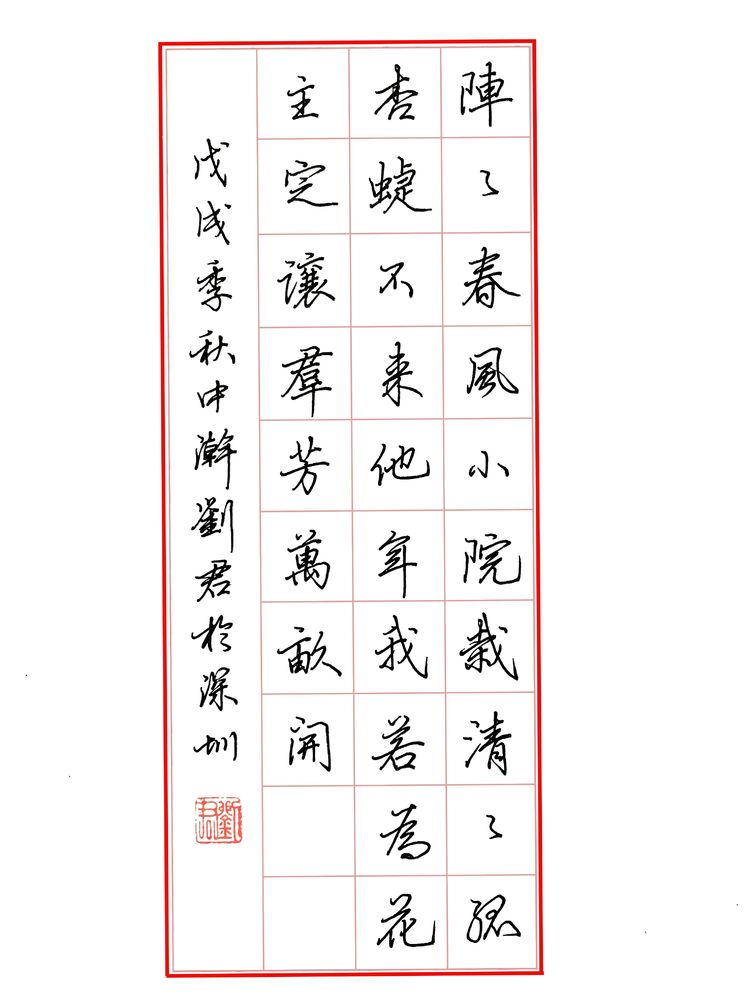 陣々春風小院栽清々孤
杏蝶不来他年我若為花
主定讓羣芳萬畝開
戊戌季秋中澣劉君於深圳
劉君